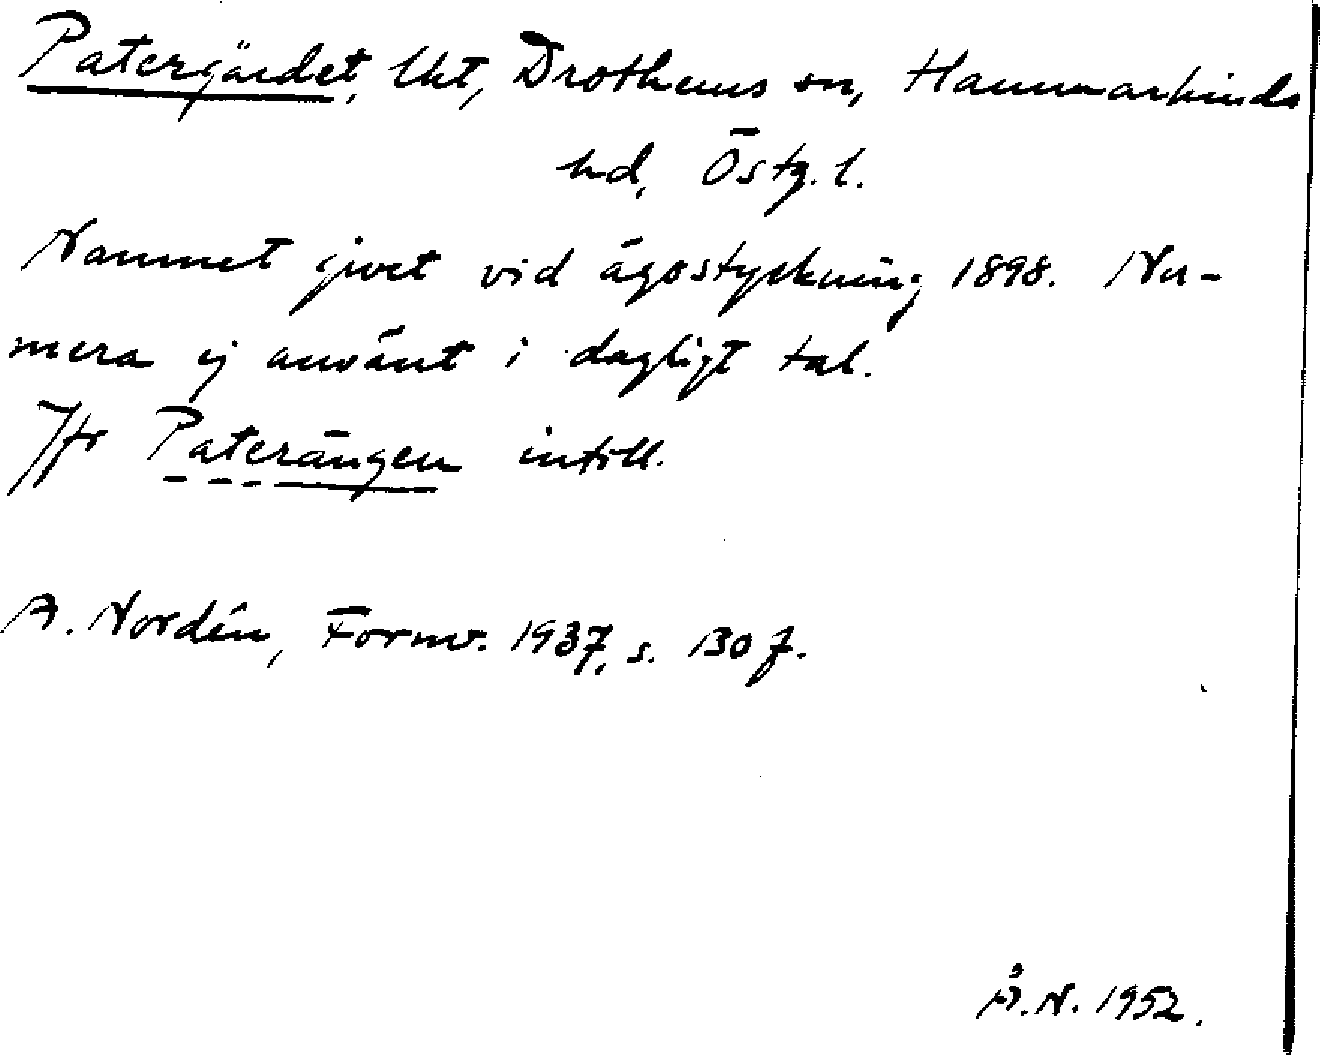 Patergärdet, lht, Drothems sn, Hammarkinds
hd, Östg.l.
Namnet givet vid ägostyckning 1898. Nu-
mera ej använt i dagligt tal.
Jfr Paterängen intill.
A. Nordén, Fornv. 1937, s. 130 f.
Å.N. 1952.